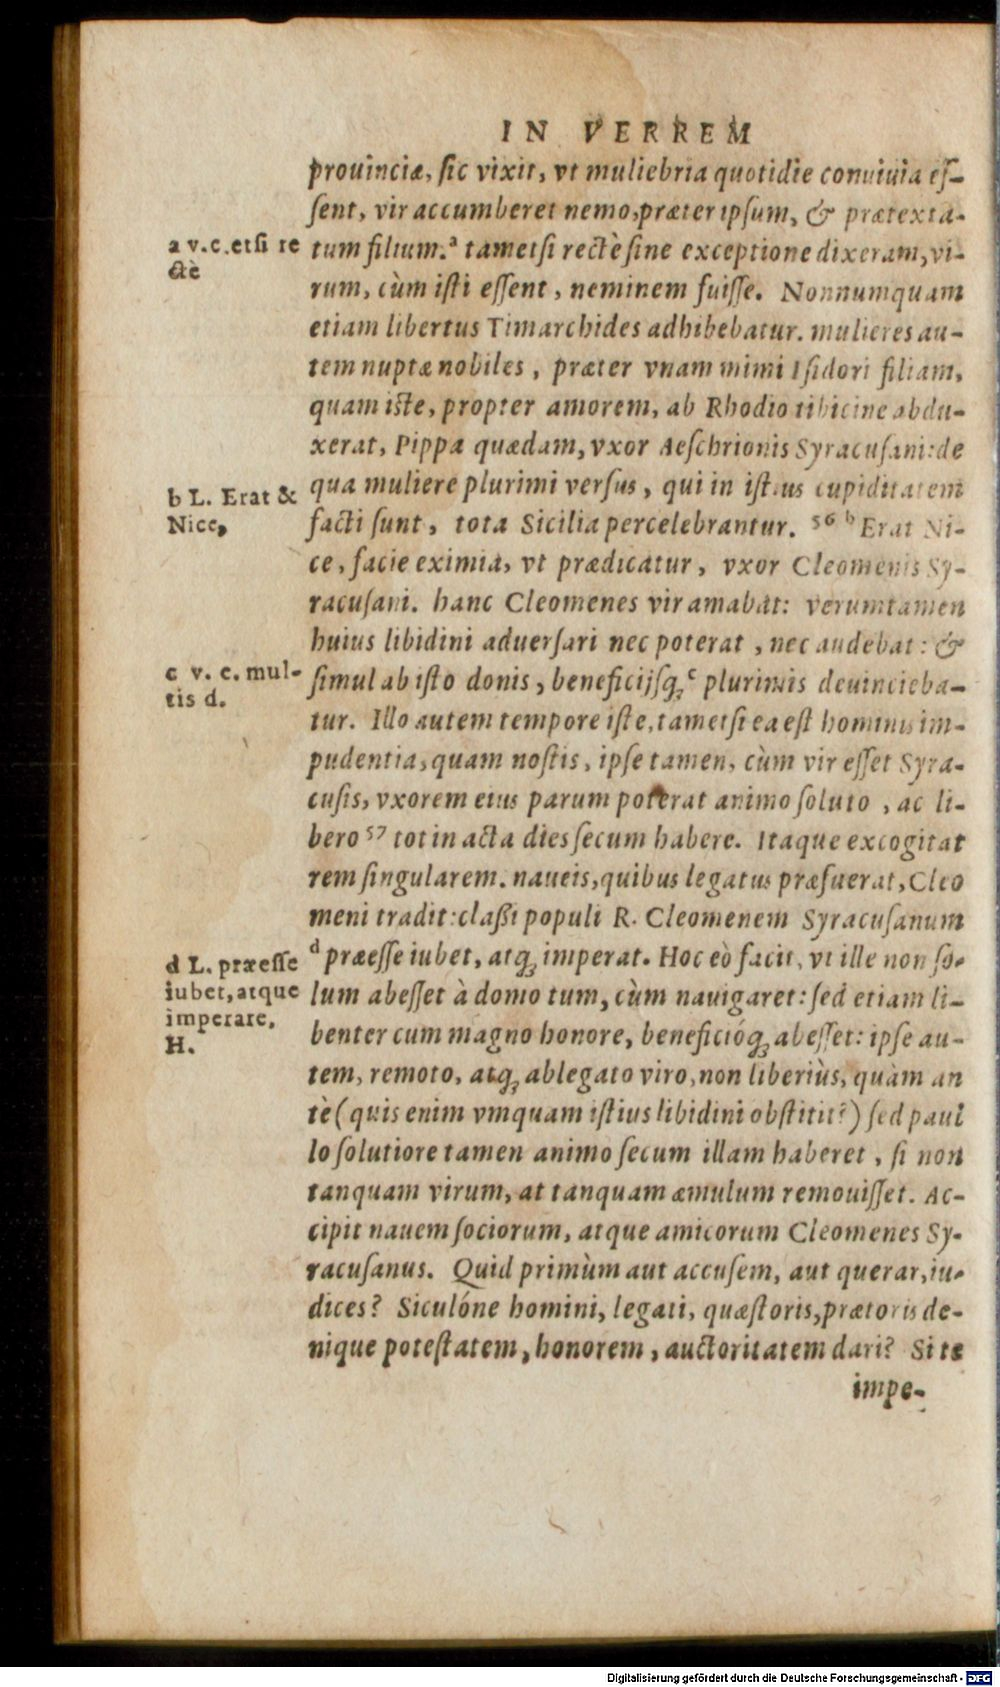 IN VERREM
prouinciæ, sic vixit, vt muliebria quotidie conuiuia es-
sent, vir accumberet nemo, præter ipsum, & prætexta-
a v.c. etsi re
ctè
tum filium.ᵃ tametsi rectè sine exceptione dixeram, vi-
rum, cùm isti essent, neminem fuisse. Nonnumquam
etiam libertus Timarchides adhibebatur. mulieres au-
tem nuptæ nobiles, præter vnam mimi Isidori filiam,
quam iste, propter amorem, ab Rhodio tibicine abdu-
xerat, Pippa quædam, vxor Aeschrionis Syracusani: de
b L. Erat &
Nice,
qua muliere plurimi versus, qui in istius cupiditatem
facti sunt, tota Sicilia percelebrantur. ⁵⁶ ᵇ Erat Ni-
ce, facie eximia, vt prædicatur, vxor Cleomenis Sy-
racusani. hanc Cleomenes vir amabat: verumtamen
huius libidini aduersari nec poterat, nec audebat: &
c v. c. mul-
tis d.
simul ab isto donis, beneficijsq;ᶜ plurimis deuincieba-
tur. Illo autem tempore iste, tametsi ea est hominis im-
pudentia, quam nostis, ipse tamen, cùm vir esset Syra-
cusis, vxorem eius parum poterat animo soluto, ac li-
bero ⁵⁷ tot in acta dies secum habere. Itaque excogitat
rem singularem. naueis, quibus legatus præfuerat, Cleo
meni tradit: classi populi R. Cleomenem Syracusanum
d L. præesse
iubet, atque
imperare,
H.
ᵈ præesse iubet, atq; imperat. Hoc eò facit, vt ille non so-
lum abesset à domo tum, cùm nauigaret: sed etiam li-
benter cum magno honore, beneficióq; abesset: ipse au-
tem, remoto, atq; ablegato viro, non liberiùs, quàm an
tè (quis enim vmquam istius libidini obstitit?) sed paul
lo solutiore tamen animo secum illam haberet, si non
tanquam virum, at tanquam æmulum remouisset. Ac-
cipit nauem sociorum, atque amicorum Cleomenes Sy-
racusanus. Quid primùm aut accusem, aut querar, iu-
dices? Siculóne homini, legati, quæstoris, prætoris de-
nique potestatem, honorem, auctoritatem dari? Si te
impe-
Digitalisierung gefördert durch die Deutsche Forschungsgemeinschaft - DFG